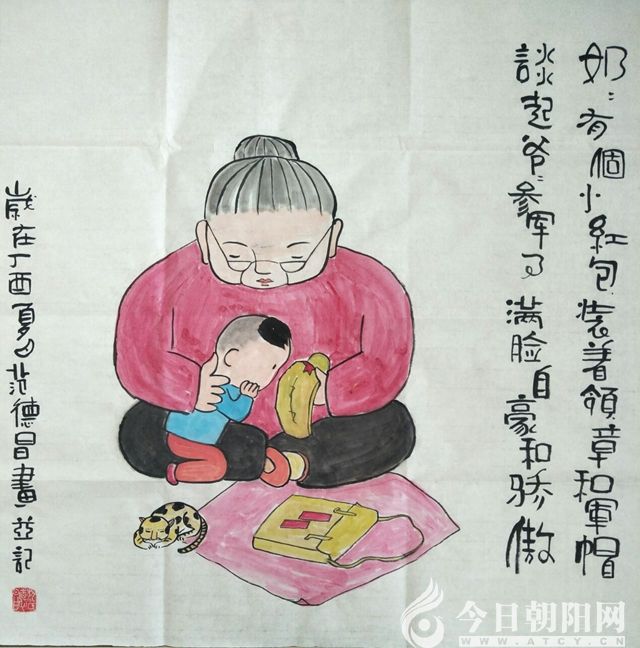 奶〻有個小紅包裝着領章和軍帽
談起爷〻參军了满脸自豪和骄傲
歲在丁酉夏日范德昌畫並記
今日朝阳网
WWW.ATCY.CN